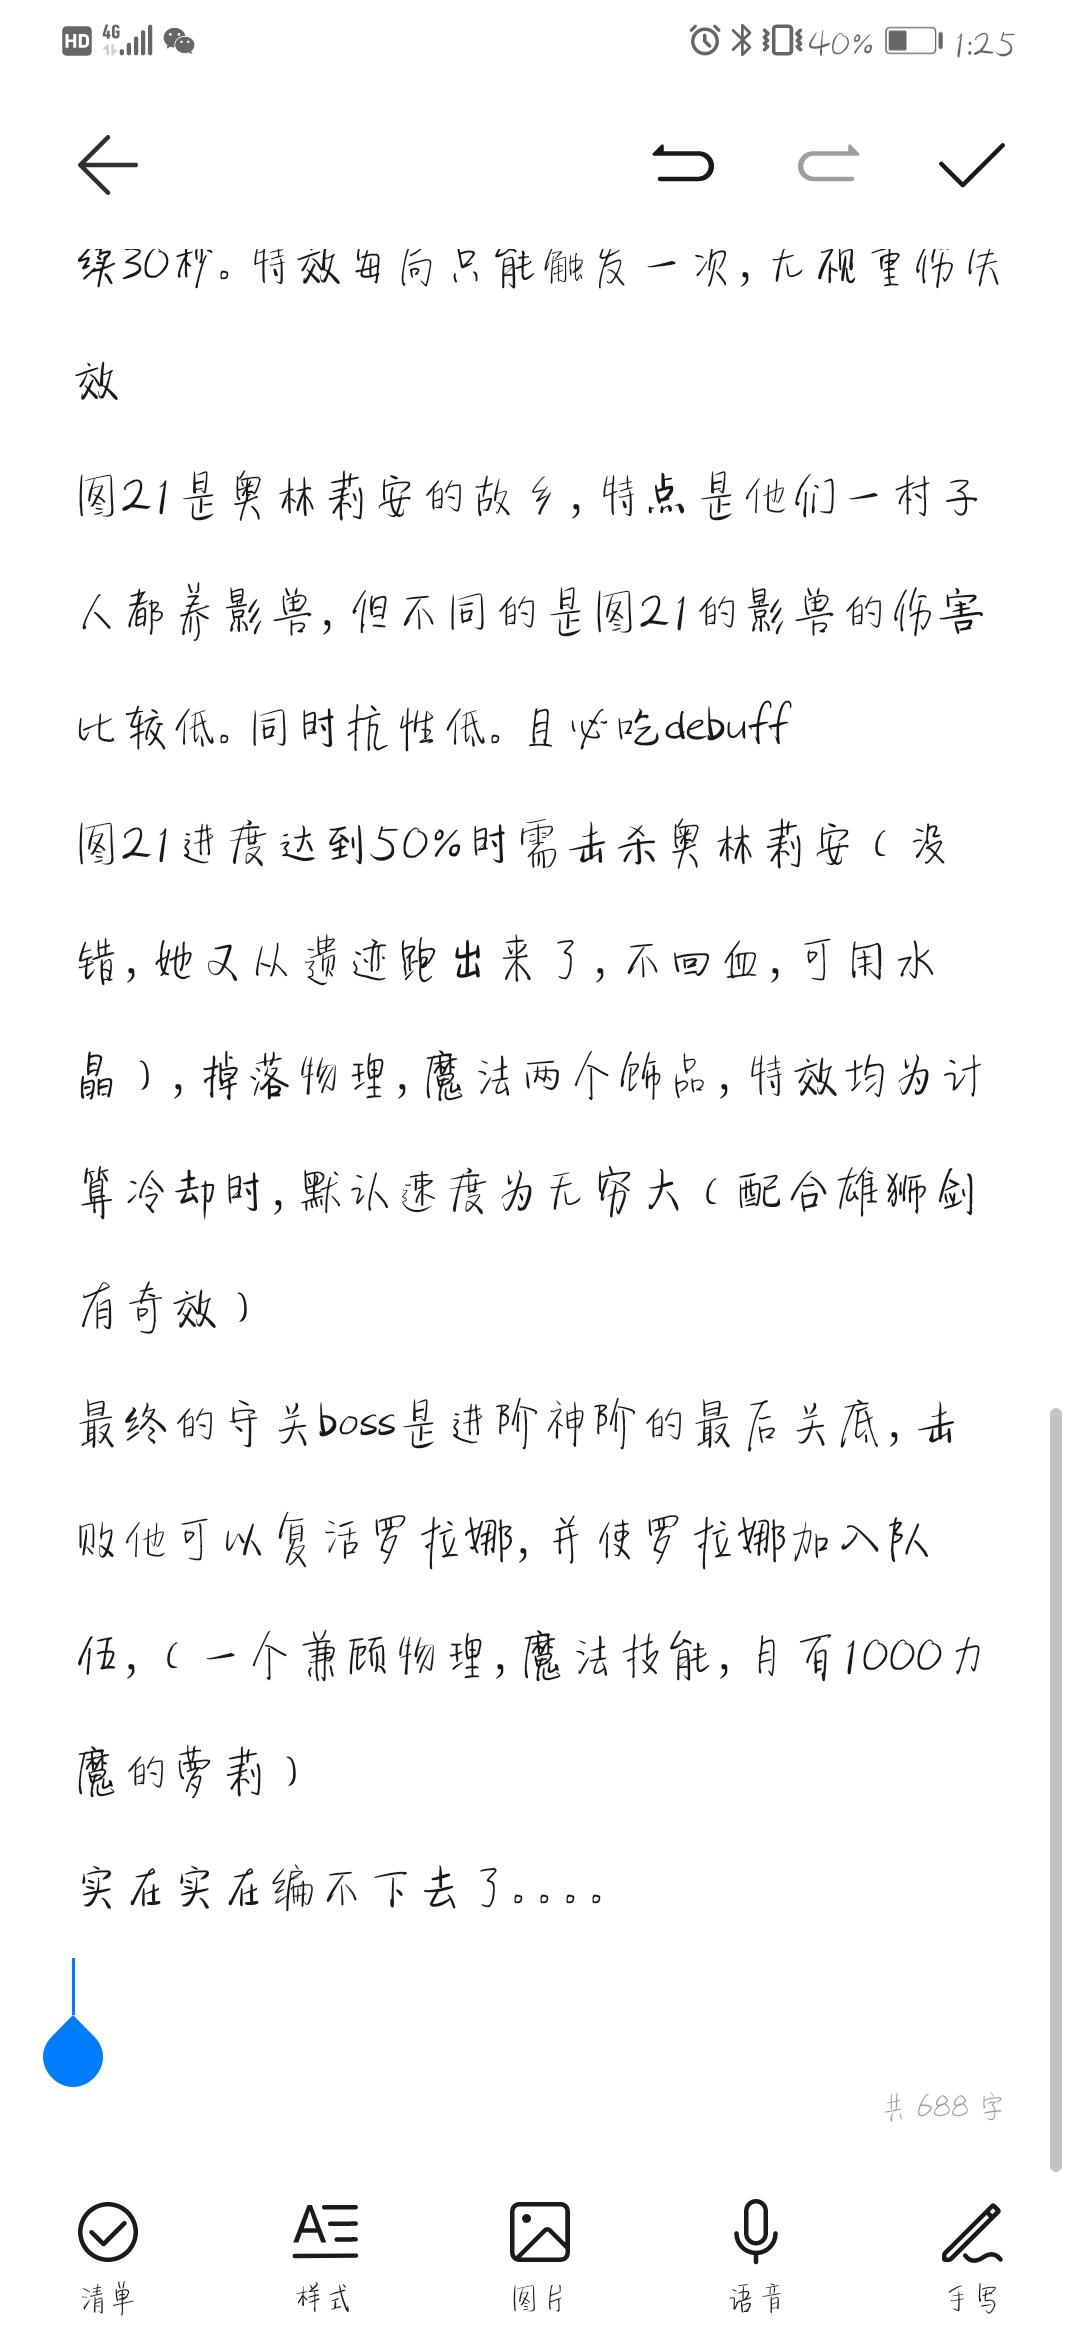 HD 4G 40% 1:25
续30秒。特效每局只能触发一次,无视重伤失
效
图21是奥林莉安的故乡,特点是他们一村子
人都养影兽,但不同的是图21的影兽的伤害
比较低。同时抗性低。且必吃debuff
图21进度达到50%时需击杀奥林莉安(没
错,她又从遗迹跑出来了,不回血,可用水
晶),掉落物理,魔法两个饰品,特效均为计
算冷却时,默认速度为无穷大(配合雄狮剑
有奇效)
最终的守关boss是进阶神阶的最后关底,击
败他可以复活罗拉娜,并使罗拉娜加入队
伍,(一个兼顾物理,魔法技能,且有1000力
魔的萝莉)
实在实在编不下去了。。。。
共 688 字
清单 样式 图片 语音 手写